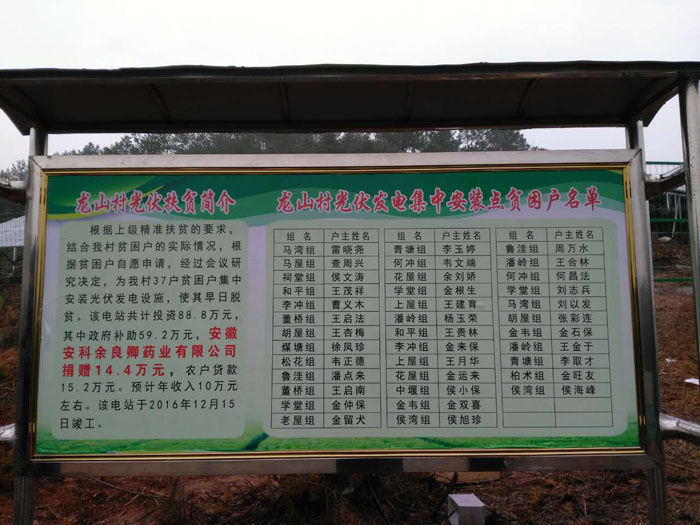 龙山村光伏扶贫简介
根据上级精准扶贫的要求，
结合我村贫困户的实际情况，根
据贫困户自愿申请，经过会议研
究决定，为我村37户贫困户集中
安装光伏发电设施，使其早日脱
贫。该电站共计投资88.8万元，
其中政府补助59.2万元，安徽
安科余良卿药业有限公司
捐赠14.4万元，农户贷款
15.2万元。预计年收入10万元
左右。该电站于2016年12月15
日竣工。
龙山村光伏发电集中安装点贫困户名单
组 名 户主姓名 组 名 户主姓名 组 名 户主姓名
马湾组 雷晓尧 青塘组 李玉婷 鲁洼组 周万水
马屋组 查周兴 何冲组 韦文端 潘岭组 王合林
祠堂组 侯文涛 花屋组 余刘娇 何冲组 何昌法
和平组 王茂祥 学堂组 金根生 学堂组 刘志兵
李冲组 曹义木 上屋组 王建育 马湾组 刘以发
董桥组 王启法 潘岭组 杨玉荣 胡屋组 张彩连
胡屋组 王杏梅 和平组 王贵林 金韦组 金石保
煤塘组 徐凤珍 李冲组 金来保 潘岭组 王金于
松花组 韦正德 上屋组 王月华 青塘组 李取才
鲁洼组 潘点来 花屋组 金运来 柏术组 金旺友
董桥组 王启南 中堰组 侯小保 侯湾组 侯海峰
学堂组 金仲保 金韦组 金双喜
老屋组 金留犬 侯湾组 侯旭珍